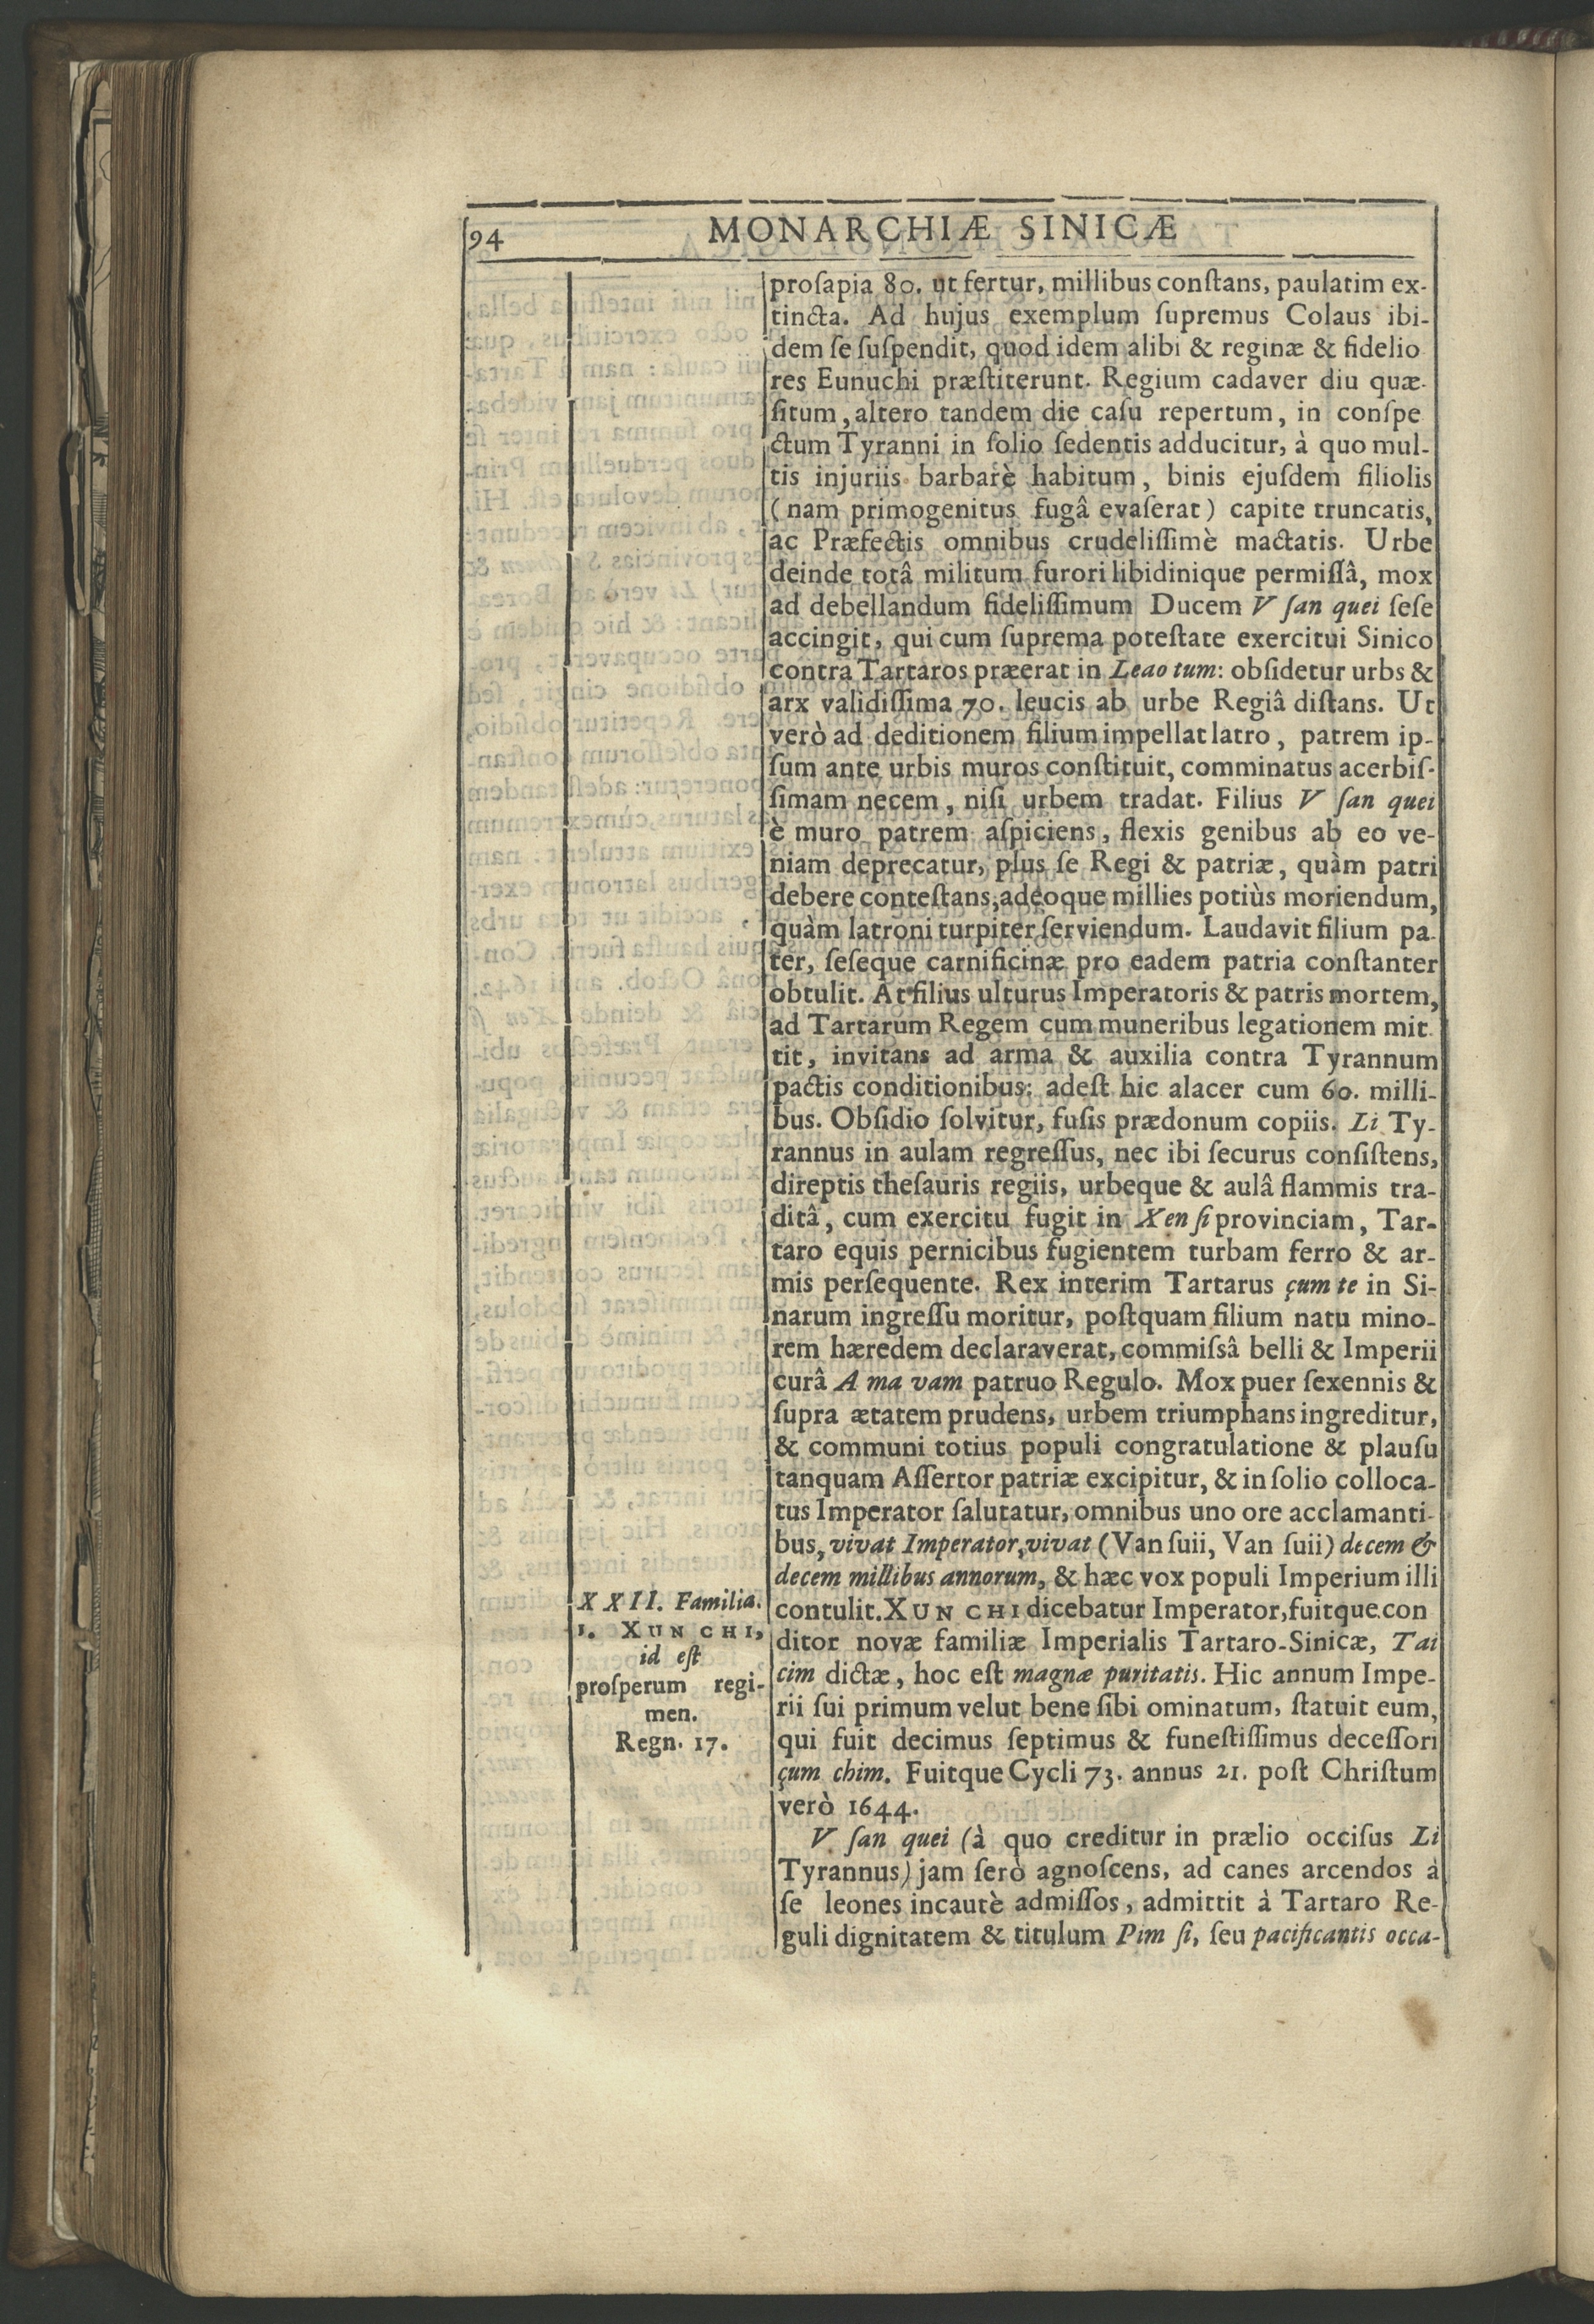 94
MONARCHIÆ SINICÆ
proſapia 80. ut fertur, millibus conſtans, paulatim ex-
tincta. Ad hujus exemplum ſupremus Colaus ibi-
dem ſe ſuſpendit, quod idem alibi & reginæ & fidelio
res Eunuchi præſtiterunt. Regium cadaver diu quæ-
ſitum, altero tandem die caſu repertum, in conſpe
ctum Tyranni in ſolio ſedentis adducitur, à quo mul-
tis injuriis barbarè habitum, binis ejuſdem filiolis
(nam primogenitus fugâ evaſerat) capite truncatis,
ac Præfectis omnibus crudeliſſimè mactatis. Urbe
deinde totâ militum furori libidinique permiſſâ, mox
ad debellandum fideliſſimum Ducem V ſan quei ſeſe
accingit, qui cum ſuprema poteſtate exercitui Sinico
contra Tartaros præerat in Leao tum: obſidetur urbs &
arx validiſſima 70. leucis ab urbe Regiâ diſtans. Ut
verò ad deditionem filium impellat latro, patrem ip-
ſum ante urbis muros conſtituit, comminatus acerbiſ-
ſimam necem, niſi urbem tradat. Filius V ſan quei
è muro patrem aſpiciens, flexis genibus ab eo ve-
niam deprecatur, plus ſe Regi & patriæ, quàm patri
debere conteſtans, adeoque millies potiùs moriendum,
quàm latroni turpiter ſerviendum. Laudavit filium pa-
ter, ſeſeque carnificinæ pro eadem patria conſtanter
obtulit. At filius ulturus Imperatoris & patris mortem,
ad Tartarum Regem cum muneribus legationem mit
tit, invitans ad arma & auxilia contra Tyrannum
pactis conditionibus: adeſt hic alacer cum 60. milli-
bus. Obſidio ſolvitur, fuſis prædonum copiis. Li Ty-
rannus in aulam regreſſus, nec ibi ſecurus conſiſtens,
direptis theſauris regiis, urbeque & aulâ flammis tra-
ditâ, cum exercitu fugit in Xen ſi provinciam, Tar-
taro equis pernicibus fugientem turbam ferro & ar-
mis perſequente. Rex interim Tartarus çum te in Si-
narum ingreſſu moritur, poſtquam filium natu mino-
rem hæredem declaraverat, commiſsâ belli & Imperii
curâ A ma vam patruo Regulo. Mox puer ſexennis &
ſupra ætatem prudens, urbem triumphans ingreditur,
& communi totius populi congratulatione & plauſu
tanquam Aſſertor patriæ excipitur, & in ſolio colloca-
tus Imperator ſalutatur, omnibus uno ore acclamanti-
bus, vivat Imperator, vivat (Van ſuii, Van ſuii) decem &
decem millibus annorum, & hæc vox populi Imperium illi
contulit. XUN CHI dicebatur Imperator, fuitque con
ditor novæ familiæ Imperialis Tartaro-Sinicæ, Tai
cim dictæ, hoc eſt magnæ puritatis. Hic annum Impe-
rii ſui primum velut bene ſibi ominatum, ſtatuit eum,
qui fuit decimus ſeptimus & funeſtiſſimus deceſſori
çum chim. Fuitque Cycli 73. annus 21. poſt Chriſtum
verò 1644.
V ſan quei (à quo creditur in prælio occiſus Li
Tyrannus) jam ſerò agnoſcens, ad canes arcendos à
ſe leones incautè admiſſos, admittit à Tartaro Re-
guli dignitatem & titulum Pim ſi, ſeu pacificantis occa-
XXII. Familia.
1. XUN CHI,
id eſt
proſperum regi-
men.
Regn. 17.